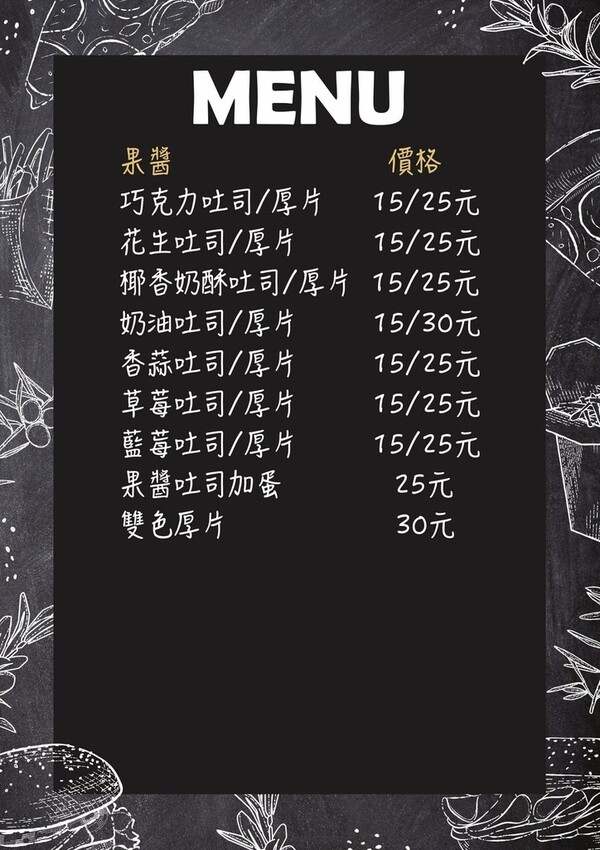 MENU
果醬 價格
巧克力吐司/厚片 15/25元
花生吐司/厚片 15/25元
椰香奶酥吐司/厚片 15/25元
奶油吐司/厚片 15/30元
香蒜吐司/厚片 15/25元
草莓吐司/厚片 15/25元
藍莓吐司/厚片 15/25元
果醬吐司加蛋 25元
雙色厚片 30元